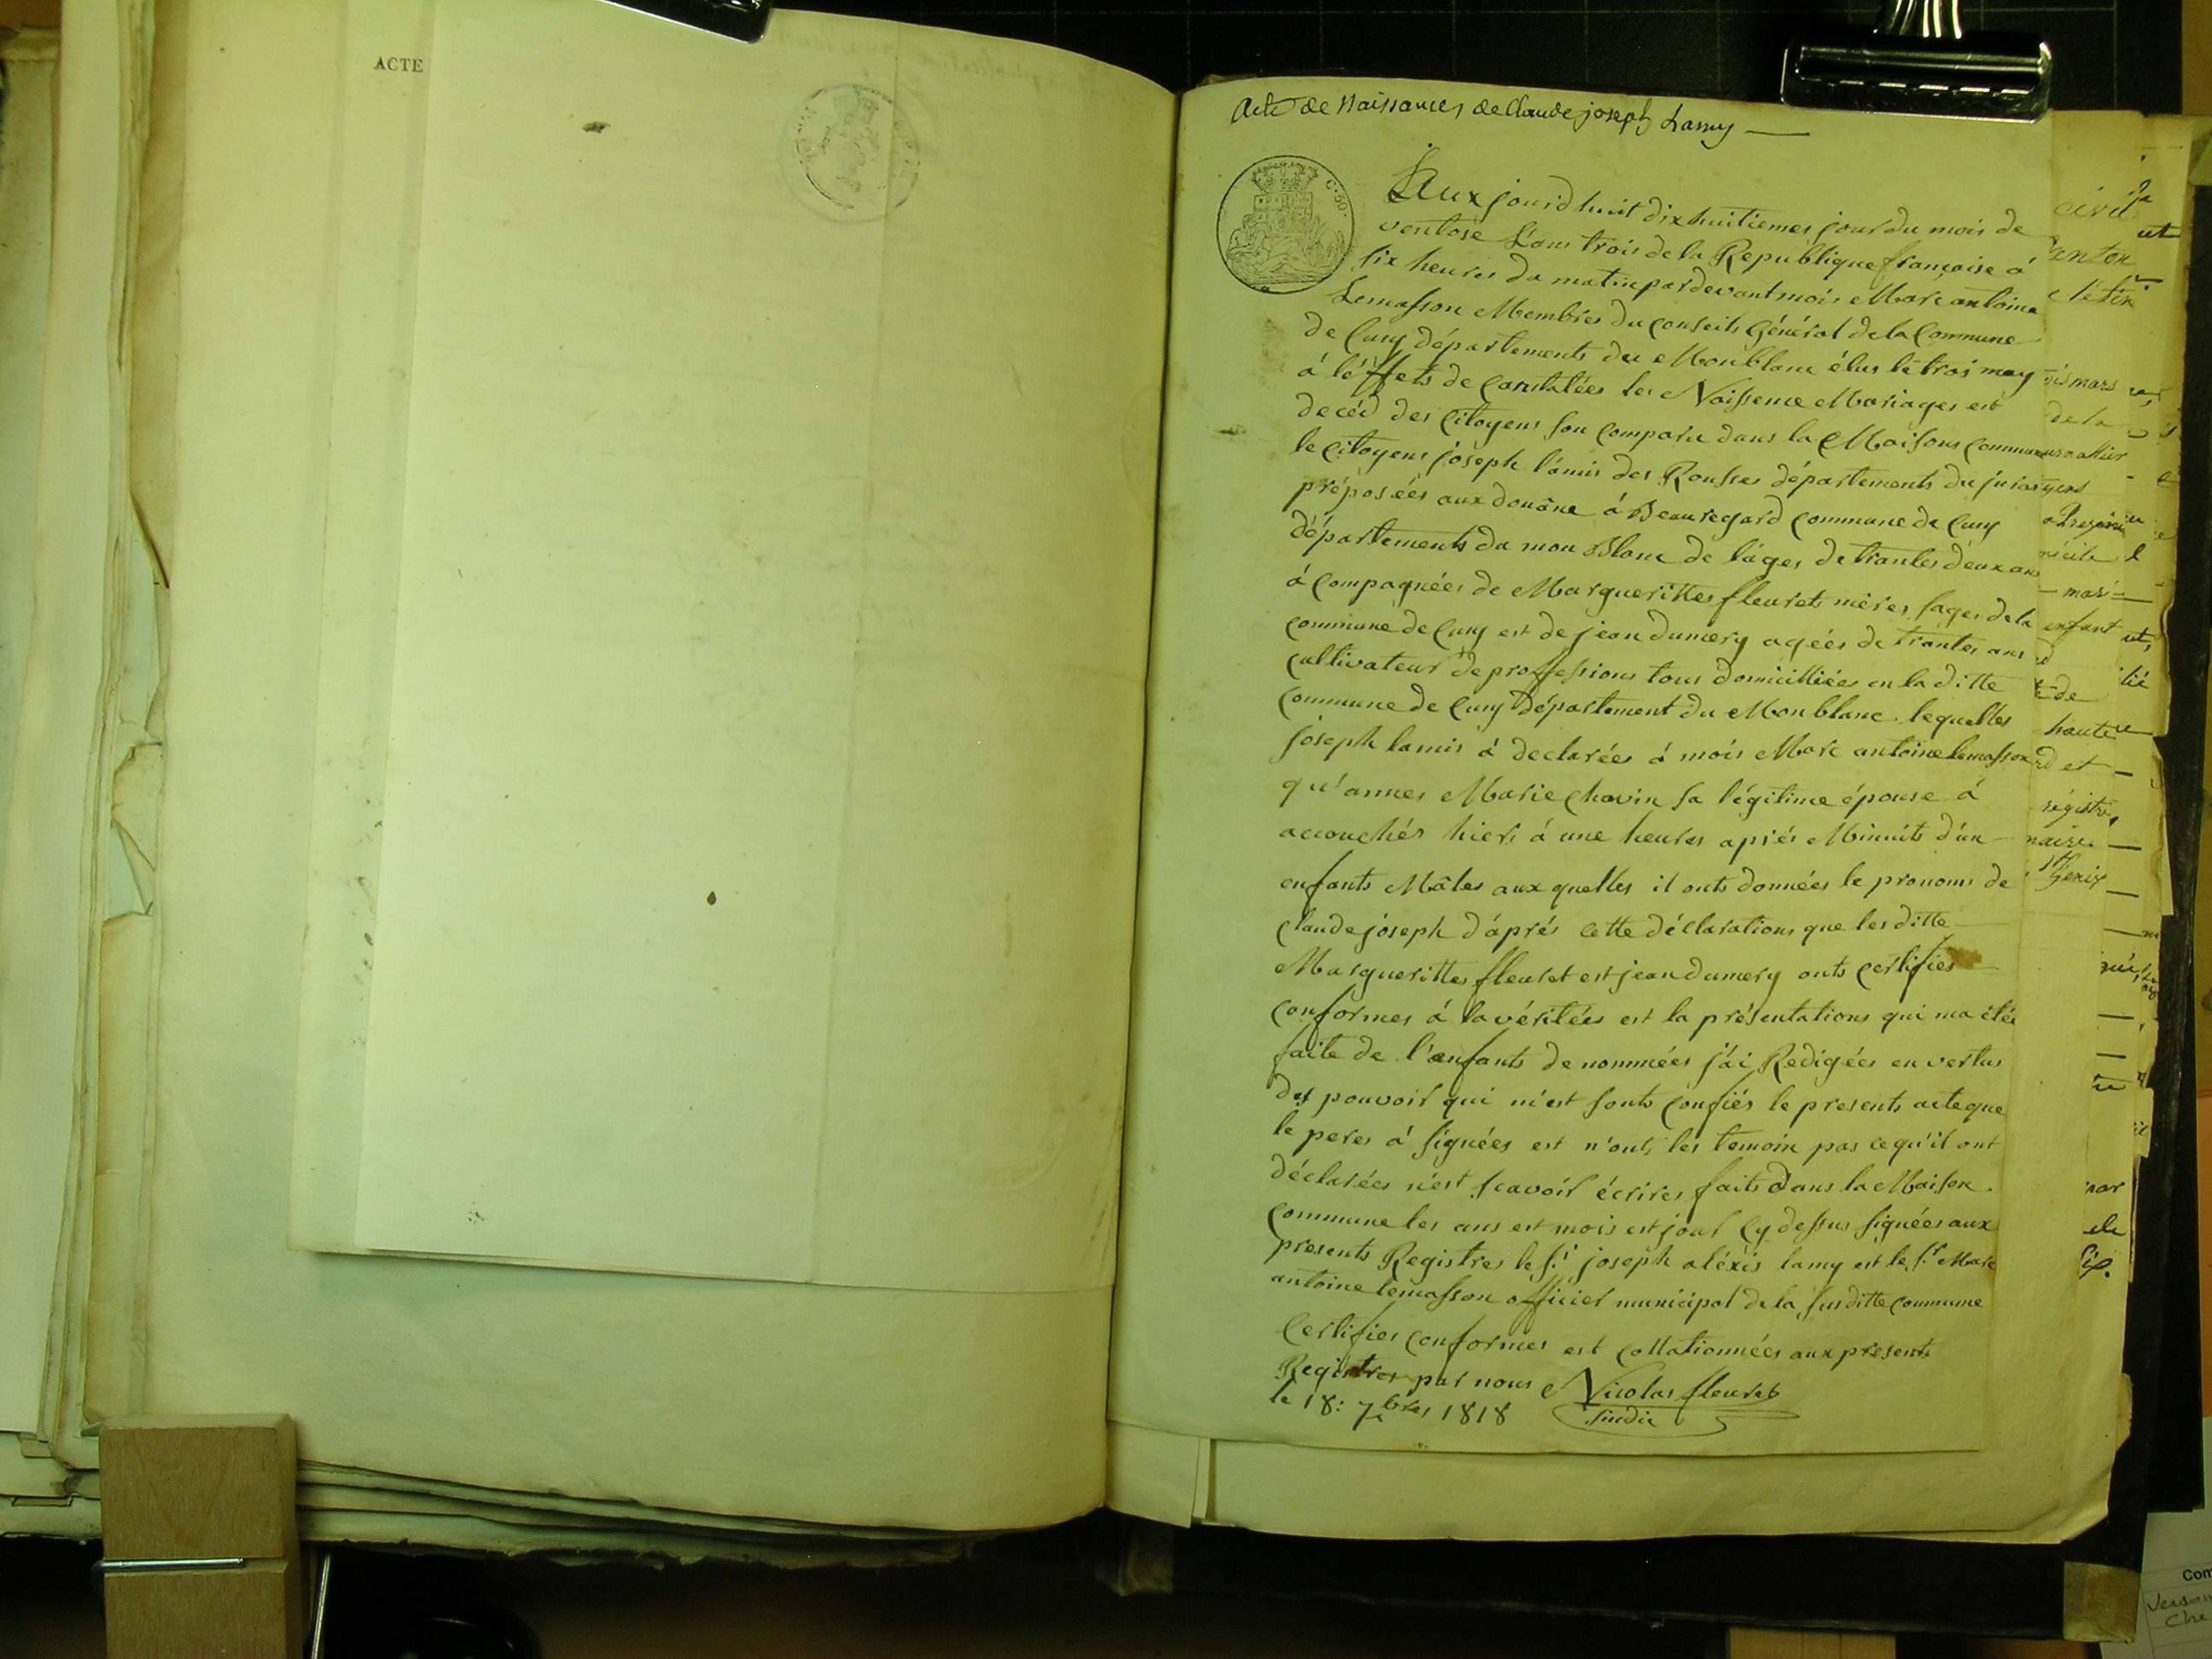 ACTE
Acte de Naissances de Claude joseph Lamy
C. 50.
L'Aux jourd huit dix huitiemes jour du mois de
ventose L'ans trois de la Republique française á
six heures du matin par devant mois Marc antoine
Lemasson Membres du conseils Général de la Commune
de Cusy départements du Monblanc élus le trois may
á léffets de constatées les Naissence Mariages est
decéd des Citoyens son comparu dans la Maisons commune
le Citoyens joseph lamis des Rousses départements du juras
préposées aux douâne á Beauregard commune de Cusy
départements du mon Blanc de láges de trantes deux ans
á compagnées de Marguerittes fleurets mères sages de la
commune de Cusy est de jean dumery agées de trantes ans
cultivateur de proffessions tous domicilliées en la ditte
commune de Cusy département du Mon blanc lequelles
joseph lamis á declarées á mois Marc antoine lemasson
qu'annes Marie Chavin sa légitime épouse á
accouchés hiers á une heures aprés Minuits d'un
enfants Mâles aux quelles il onts données le pronoms de
Claude joseph d'áprés cette déclarations que les ditte
Marguerittes fleuret est jean dumery onts certifies
conformes á la véritées est la présentations qui ma étés
faite de l'enfants de nommées j'ái Redigées en vertus
des pouvoir qui m'est sonts confiés le presents acte que
le peres á signées est n'onts les temoin pas ce qu'il ont
déclarées n'est scavoir écrires faits dans la Maison
commune les ans est mois est jour cy dessus signées aux
presents Registres le s.r joseph aléxis lamy est le s.r Marc
antoine lemasson officier municipal de la susditte commune
Certifies conformes est collationnées aux presents
Registres par nous Nicolas fleuret
le 18: 7bres 1818 Sindic
civil
canton
mars
de la
enfant
de
haute
et
régistre
Genix
par
Com